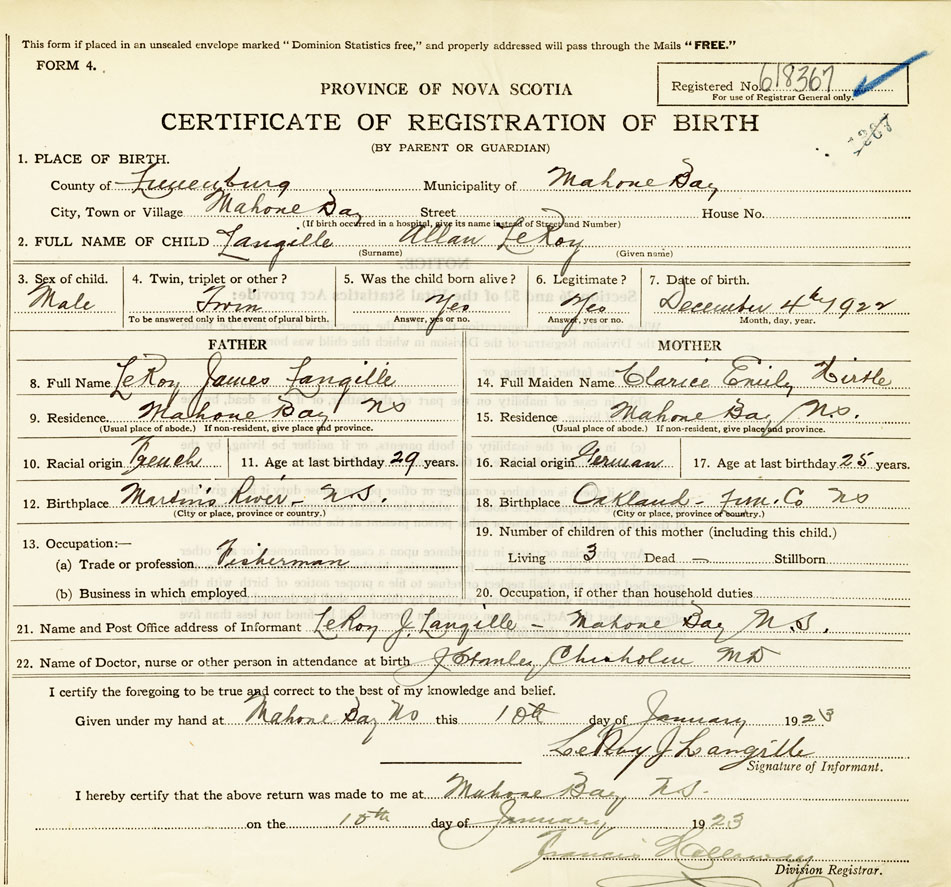 This form if placed in an unsealed envelope marked "Dominion Statistics free," and properly addressed will pass through the Mails "FREE."
FORM 4.
Registered No. 618367
For use of Registrar General only.
PROVINCE OF NOVA SCOTIA
CERTIFICATE OF REGISTRATION OF BIRTH
(BY PARENT OR GUARDIAN)
1. PLACE OF BIRTH.
County of Lunenburg Municipality of Mahone Bay
City, Town or Village Mahone Bay Street House No.
(If birth occurred in a hospital, give its name instead of Street and Number)
2. FULL NAME OF CHILD Langille Allan LeRoy
(Surname) (Given name)
3. Sex of child. 4. Twin, triplet or other? 5. Was the child born alive? 6. Legitimate? 7. Date of birth.
Male Twin Yes Yes December 4th 1922
To be answered only in the event of plural birth. Answer, yes or no. Answer, yes or no. Month, day, year.
FATHER MOTHER
8. Full Name LeRoy James Langille 14. Full Maiden Name Clarice Emily Hirtle
9. Residence. Mahone Bay NS 15. Residence Mahone Bay, N.S.
(Usual place of abode.) If non-resident, give place and province. (Usual place of abode.) If non-resident, give place and province.
10. Racial origin French 11. Age at last birthday 29 years. 16. Racial origin German 17. Age at last birthday 25 years.
12. Birthplace Martin's River - N.S. 18. Birthplace Oakland - Lun. Co NS
(City or place, province or country.) (City or place, province or country.)
13. Occupation:— 19. Number of children of this mother (including this child.)
(a) Trade or profession Fisherman Living 3 Dead — Stillborn
(b) Business in which employed 20. Occupation, if other than household duties
21. Name and Post Office address of Informant LeRoy J. Langille - Mahone Bay N.S.
22. Name of Doctor, nurse or other person in attendance at birth J Stanley Chisholm MD
I certify the foregoing to be true and correct to the best of my knowledge and belief.
Given under my hand at Mahone Bay NS this 10th day of January 1923
LeRoy J Langille
Signature of Informant.
I hereby certify that the above return was made to me at Mahone Bay N.S.
on the 10th day of January 1923
Francis
Division Registrar.